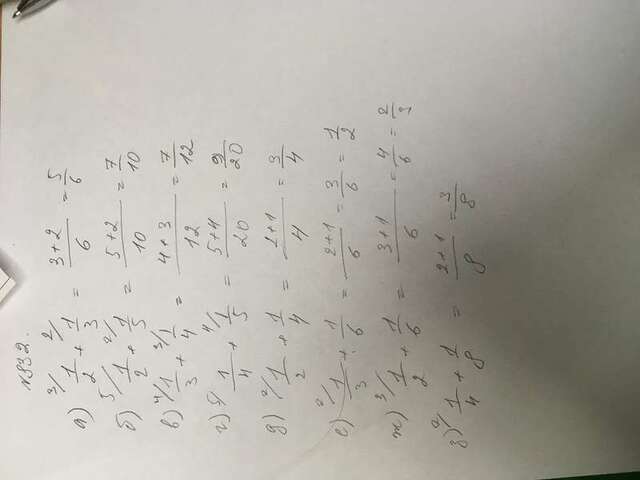 №932.
а) 3/ 1/2 + 2/ 1/3 = 3+2/6 = 5/6
б) 5/ 1/2 + 2/ 1/5 = 5+2/10 = 7/10
в) 4/ 1/3 + 3/ 1/4 = 4+3/12 = 7/12
г) 5/ 1/4 + 4/ 1/5 = 5+4/20 = 9/20
д) 2/ 1/2 + 1/4 = 2+1/4 = 3/4
е) 2/ 1/3 + 1/6 = 2+1/6 = 3/6 = 1/2
ж) 3/ 1/2 + 1/6 = 3+1/6 = 4/6 = 2/3
з) 2/ 1/4 + 1/8 = 2+1/8 = 3/8